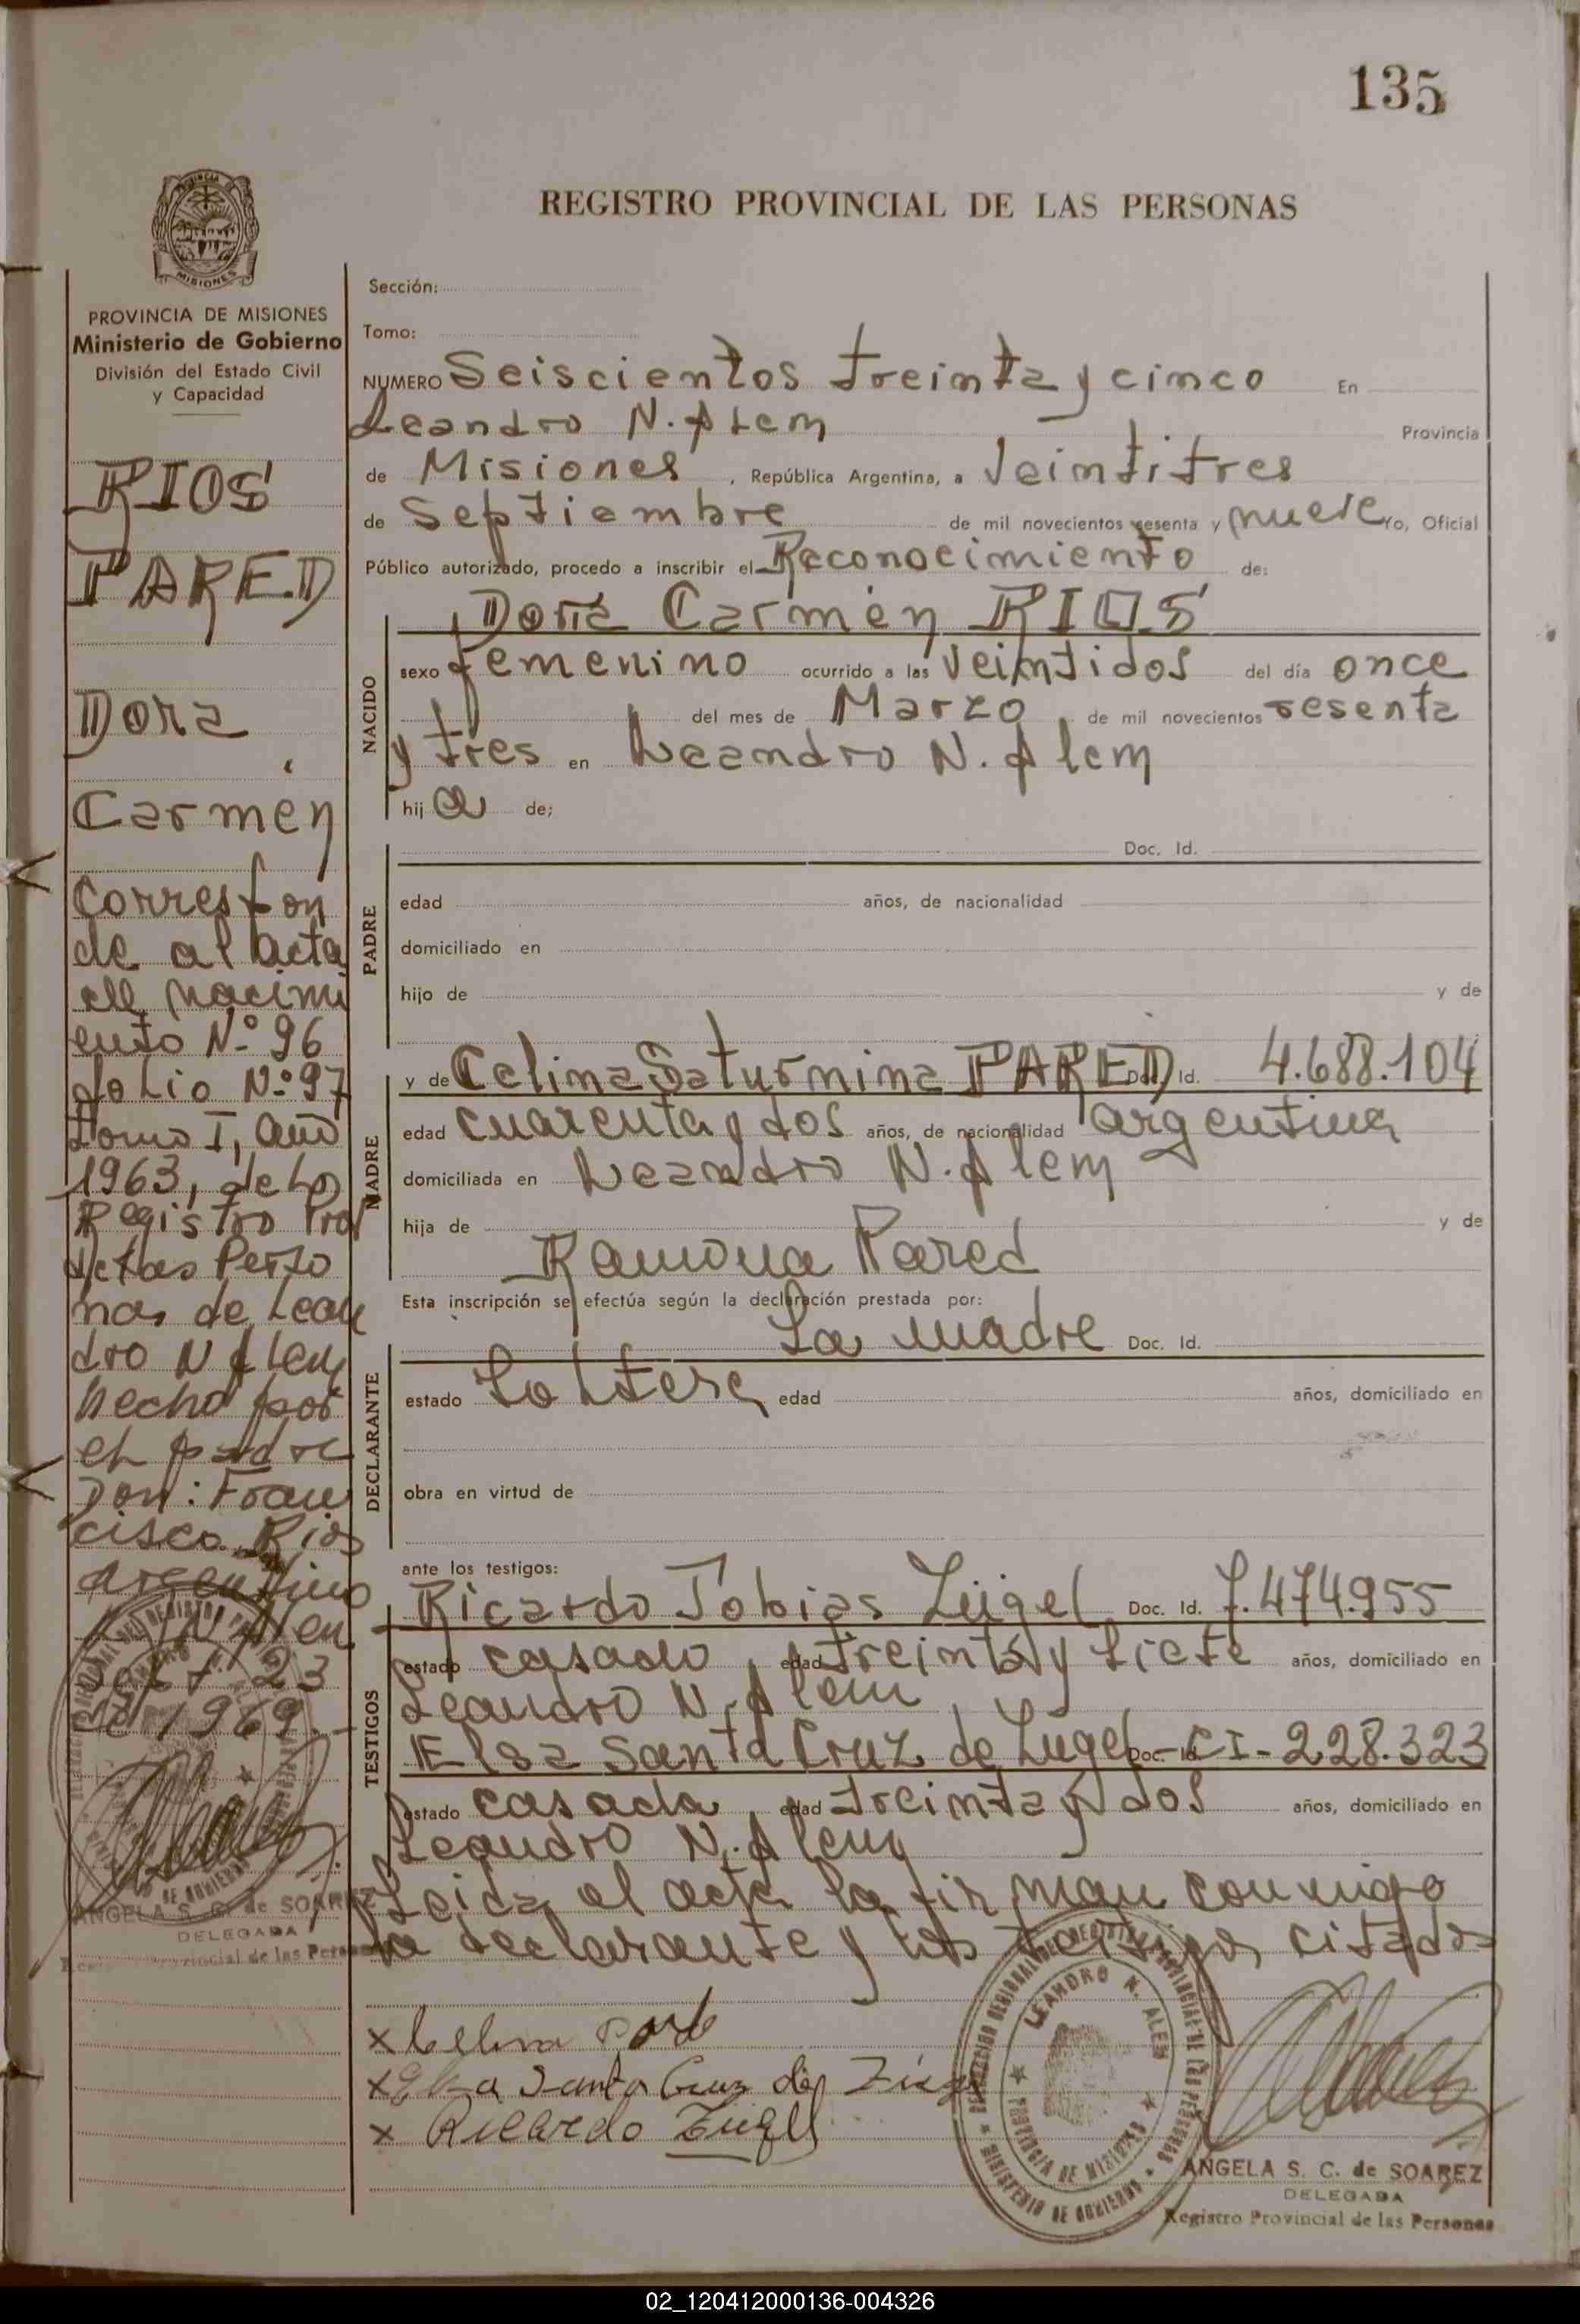 135
REGISTRO PROVINCIAL DE LAS PERSONAS
MISIONES
PROVINCIA DE MISIONES
Ministerio de Gobierno
División del Estado Civil
y Capacidad
RIOS
PARED
Dora
Carmen
Correspon
de al acta
de nacimi
ento Nº 96
folio Nº 97
Tomo I, año
1963, de los
Registro Pro
de las Perso
nas de Lean
dro N Alem
hecho por
el padre
Don: Fran
cisco Rios
argentino
L N Alem
Sept. 23
de 1969.-
ANGELA S. C. de SOAREZ
DELEGADA
Provincial de las Personas
Sección:
Tomo:
NUMERO Seiscientos treinta y cinco En
Leandro N. Alem Provincia
de Misiones, República Argentina, a Veintitres
de Septiembre de mil novecientos sesenta y nueve Yo, Oficial
Público autorizado, procedo a inscribir el Reconocimiento de:
Dora Carmen RIOS
NACIDO
sexo femenino ocurrido a las Veintidos del día once
del mes de Marzo, de mil novecientos sesenta
y tres en Leandro N. Alem
hija de;
PADRE
Doc. Id.
edad años, de nacionalidad
domiciliado en
hijo de y de
MADRE
y de Celina Saturnina PARED Doc. Id. 4.688.104
edad cuarenta y dos años, de nacionalidad argentina
domiciliada en Leandro N. Alem
hija de y de
Ramona Pared
Esta inscripción se efectúa según la declaración prestada por:
DECLARANTE
La madre Doc. Id.
estado Soltera edad años, domiciliado en
obra en virtud de
ante los testigos:
TESTIGOS
Ricardo Tobias Zügel Doc. Id. 7.474.955
estado casado, edad treinta y siete años, domiciliado en
Leandro N. Alem
Elsa Santa Cruz de Zugel Doc. Id. CI-228.323
estado casada, edad treinta y dos años, domiciliado en
Leandro N. Alem
Leida el acta la firman conmigo
la declarante y los testigos citados
x Celina
x Elsa Santa Cruz de
x Ricardo Zügel
LEANDRO N. ALEM
PROVINCIA DE MISIONES
MINISTERIO DE GOBIERNO
ANGELA S. C. de SOAREZ
DELEGADA
Registro Provincial de las Personas
02_120412000136-004326